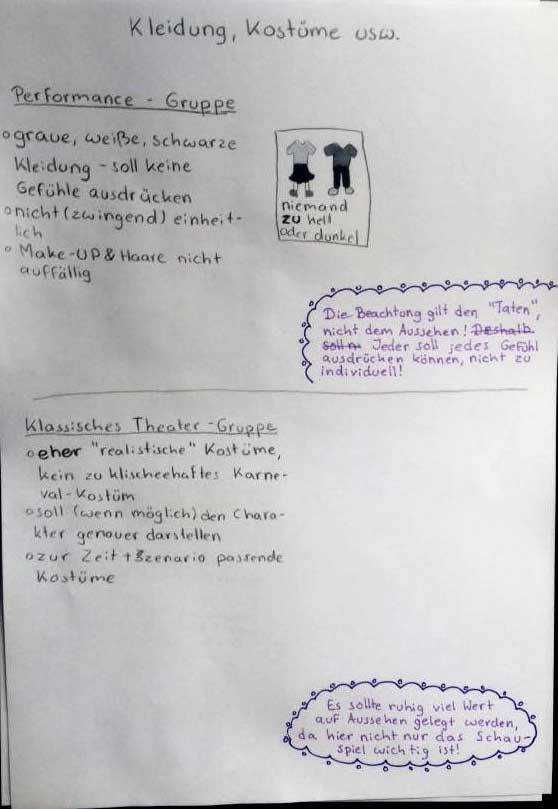 Kleidung, Kostüme usw.
Performance - Gruppe
graue, weiße, schwarze
Kleidung - soll keine
Gefühle ausdrücken
nicht (zwingend) einheit-
lich
Make-UP & Haare nicht
auffällig
niemand
zu hell
oder dunkel
Die Beachtung gilt den "Taten",
nicht dem Aussehen! Deshalb
soll n. Jeder soll jedes Gefühl
ausdrücken können, nicht zu
individuell!
Klassisches Theater - Gruppe
eher "realistische" Kostüme,
kein zu klischeehaftes Karne-
val-Kostüm
soll (wenn möglich) den Chara-
kter genauer darstellen
zur Zeit + Szenario passende
Kostüme
Es sollte ruhig viel Wert
auf Aussehen gelegt werden,
da hier nicht nur das Schau-
spiel wichtig ist!